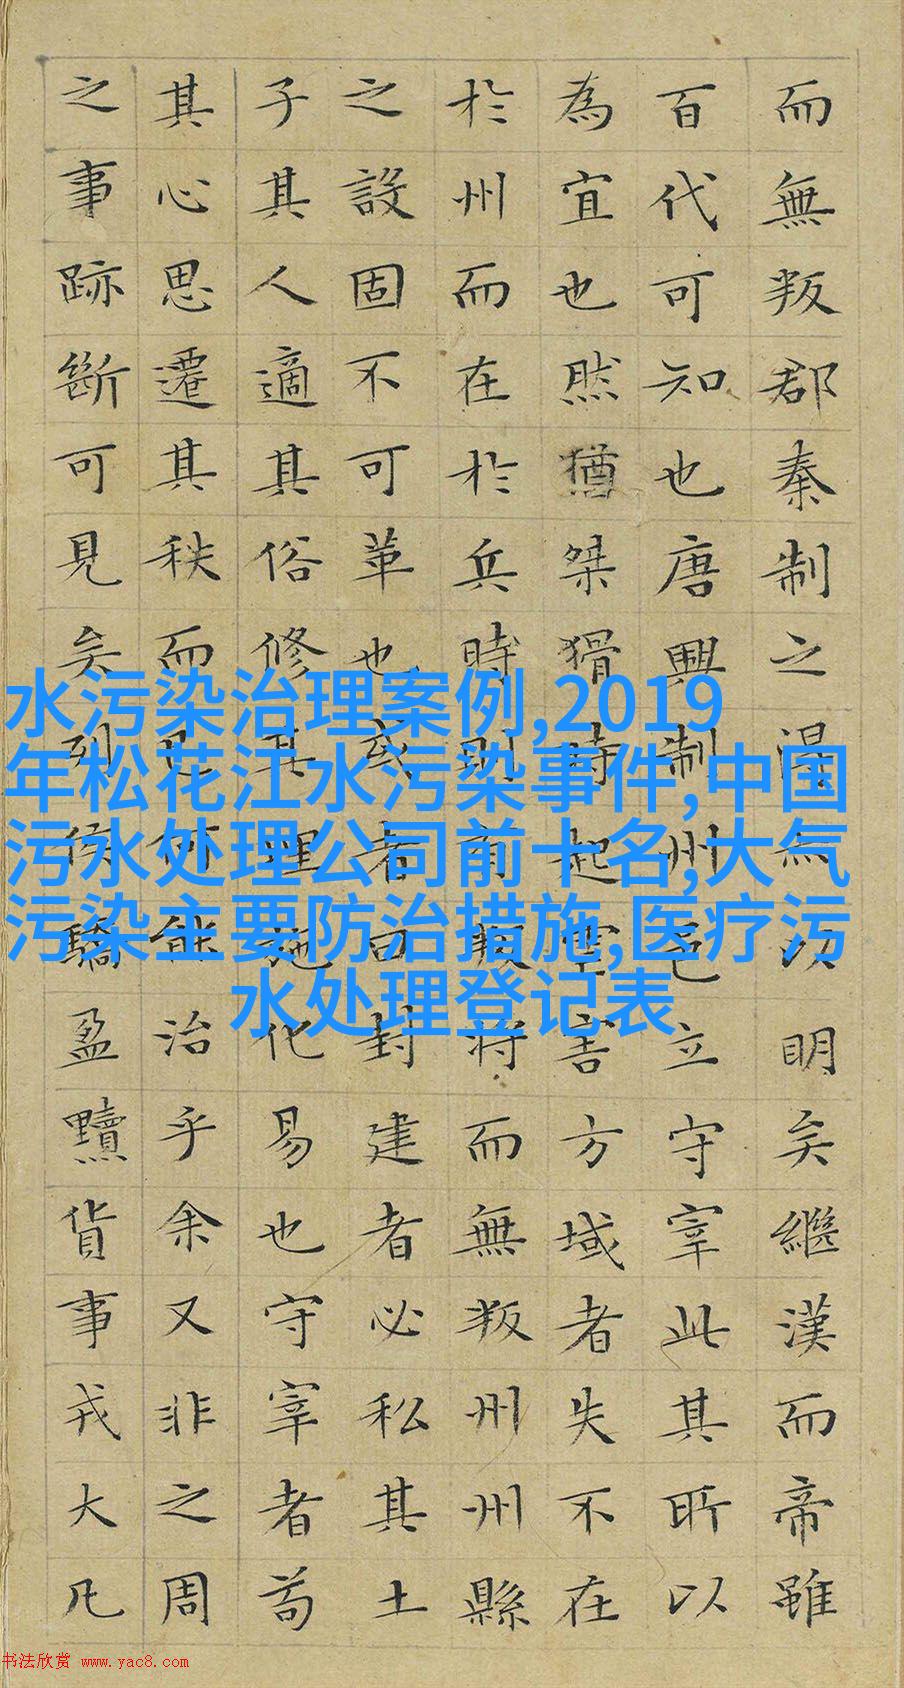 而無叛郡秦制之得亦以明矣繼漢而帝雖
百代可知也唐興制州邑立守宰此其所以
為宜也然猶桀猾時起虐害方域者失不在
於州而在於兵時則有叛將而無叛州州縣
之設固不可革也或者曰封建者必私其土
子其人適其俗修其理施化易也守宰者苟
其心思遷其秩而已何能治乎余又非之周
之事跡斷可見矣列侯驕盈黷貨事戎大凡
水污染治理案例,2019
年松花江水污染事件,中国
污水处理公司前十名,大气
污染主要防治措施,医疗污
水处理登记表
书法欣赏 www.yac8.com